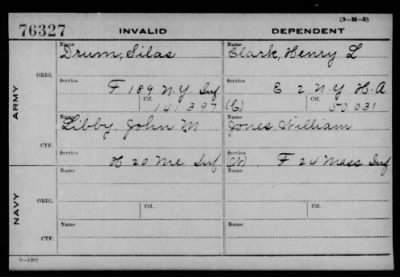 (3-H-5)
76327 INVALID DEPENDENT
ARMY
ORIG.
Name Drum, Silas
Name Clark, Henry L
Service F 189 N.Y. Inf
Service E 2 N.Y H.A
Ctf. 141 397
(C) Ctf. 50 031
CTF.
Name Libby, John M
Name Jones, William
Service H 20 Me Inf
Service (W) F 24 Mass Inf
NAVY
ORIG.
Name
Name
Ctf.
Ctf.
CTF.
Name
Name